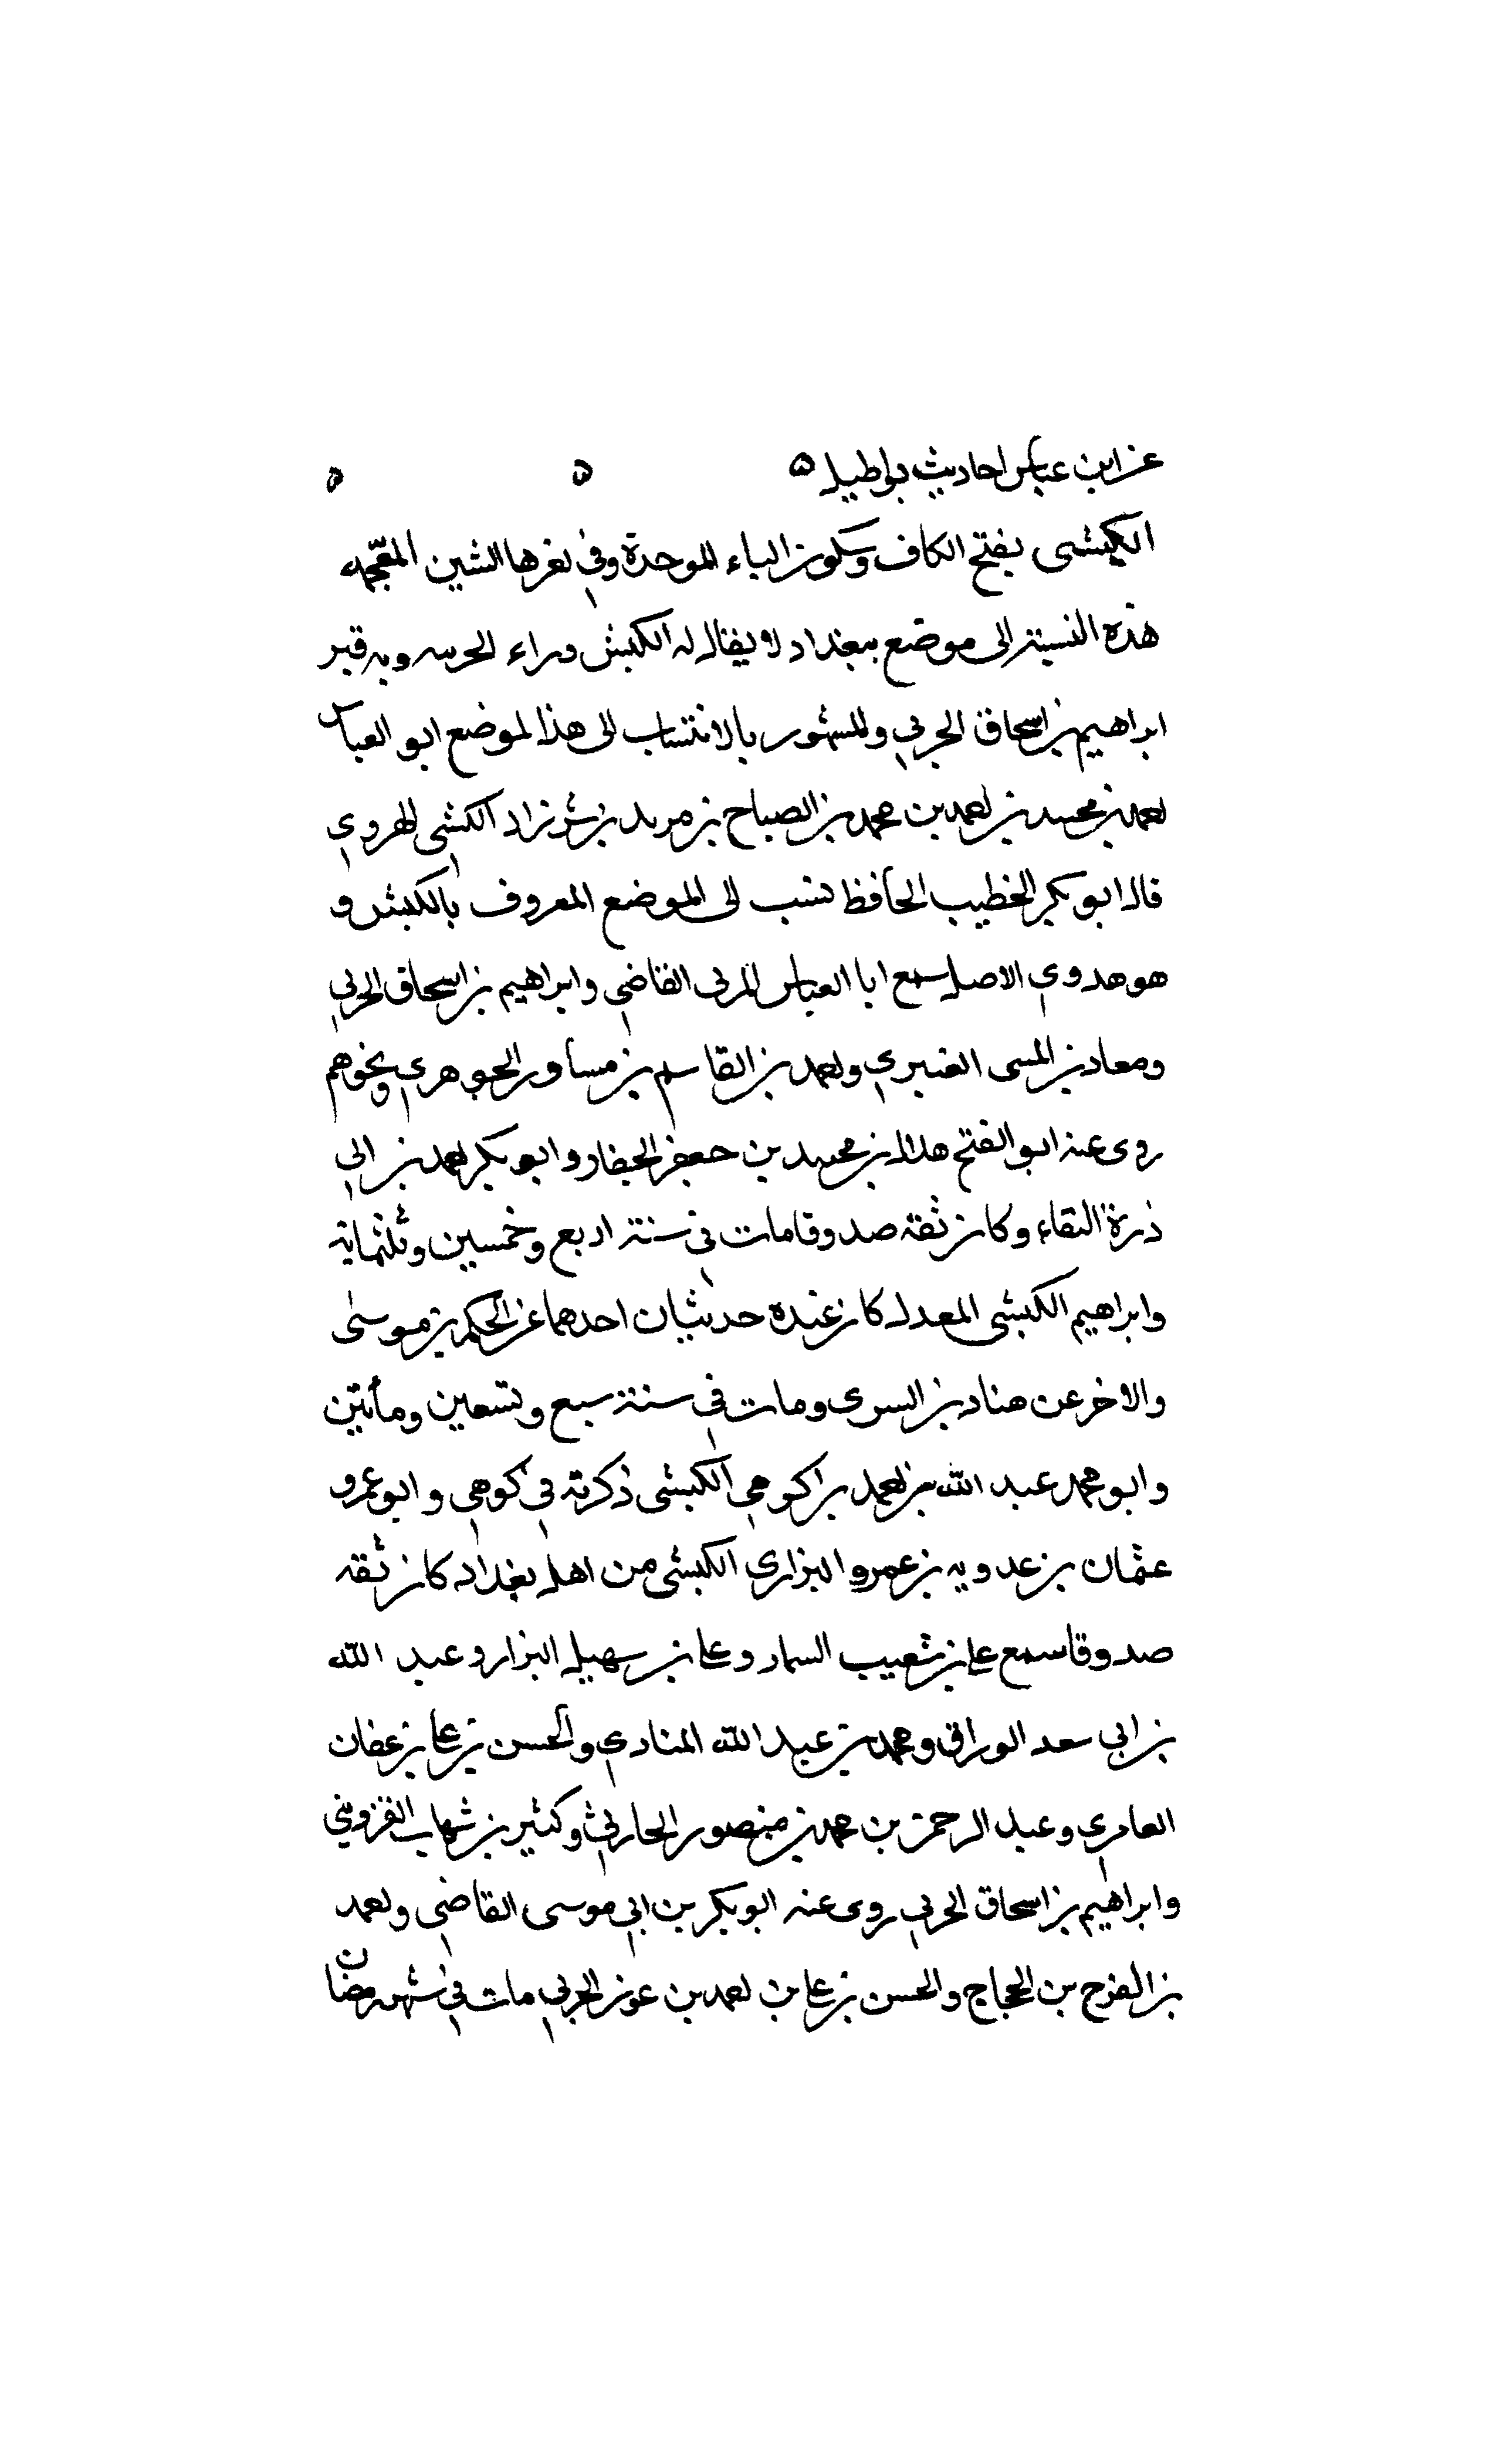 عن ابن عباس احاديث بواطيل ه ه ه
الكبشى بفتح الكاف وسكون الباء الموحدة وفي اخرها الشين المعجمه
هذه النسبة الى موضع ببغداد يقال له الكبش وراء الحربيه وبه قبر
ابراهيم بن اسحاق الحربي والمشهور بالانتساب الى هذا الموضع ابو العباس
احمد بن محمد بن احمد بن محمد بن الصباح بن مريد بن الكبشي الهروي
قال ابو بكر الخطيب الحافظ نسب الى الموضع المعروف بالكبش و
هو هروي الاصل سمع ابا العباس البرتى القاضي وابراهيم بن اسحاق الحربي
ومعاذ بن المثنى العنبري واحمد بن القاسم بن مساور الجوهري ونحوهم
روى عنه ابو الفتح هلال بن محمد بن جعفر الحفار وابو بكر احمد بن ابي
ذرة البقاء وكان ثقة صدوقا مات في سنة اربع وخمسين وثلثماية
وابراهيم الكبشي المعدل كان عنده حديثان احدهما عن الحكم بن موسى
والاخر عن هناد بن السرى ومات في سنة سبع وتسعين ومأتين
وابو محمد عبد الله بن احمد بن اكوهي الكبشي ذكرته في كوهي وابو عمرو
عثمان بن عدويه بن عمرو البزاري الكبشي من اهل بغداد كان ثقه
صدوقا سمع علي بن شعيب السمار وعلي بن سهيل البزار وعبد الله
بن ابي سعد الوراق ومحمد بن عبيد الله المنادي والحسن بن علي بن عفان
العامري وعبد الرحمن بن محمد بن منصور الحارثي وكثير بن شهاب القزويني
وابراهيم بن اسحاق الحربي روى عنه ابو بكر بن ابي موسى القاضي واحمد
بن الفرج بن الحجاج والحسن بن علي بن احمد بن عون الحربي مات في شهر رمضان